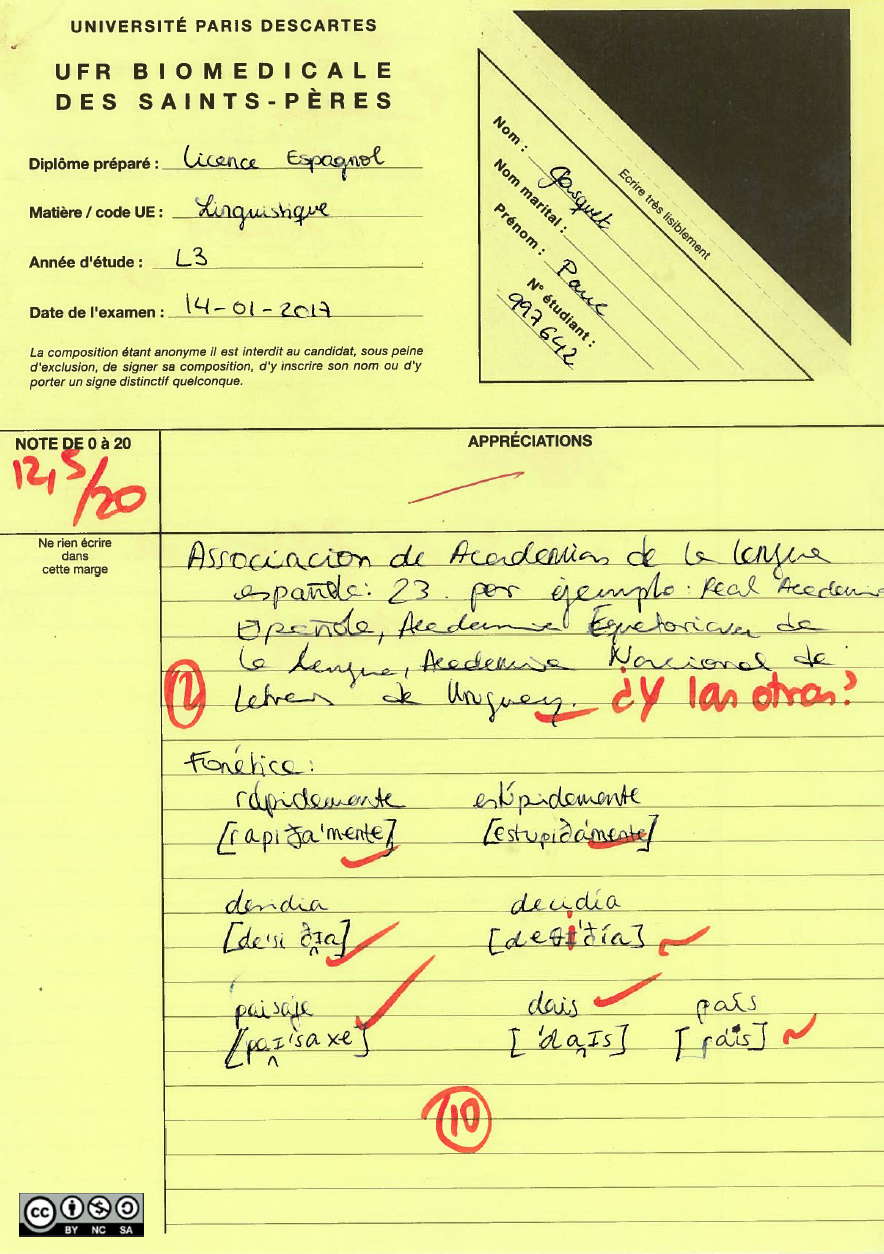 UNIVERSITÉ PARIS DESCARTES
UFR BIOMEDICALE
DES SAINTS-PÈRES
Diplôme préparé : Licence Espagnol
Matière / code UE : Linguistique
Année d'étude : L3
Date de l'examen : 14-01-2017
La composition étant anonyme il est interdit au candidat, sous peine
d'exclusion, de signer sa composition, d'y inscrire son nom ou d'y
porter un signe distinctif quelconque.
Nom : Gasquet
Nom marital :
Prénom :
N° étudiant :
997642
Ecrire très lisiblement
NOTE DE 0 à 20
12,5/20
APPRÉCIATIONS
Ne rien écrire
dans
cette marge
Associacion de Academias de la lengue
española: 23. por ejemplo: Real Academia
Española, Academia Equatoriana de
la Lengua, Academia Nacional de
Letras de Uruguay. ¿Y las otras?
2
Fonética:
rápidamente estúpidamente
[rapiða'mente] [estupiðámente]
desidia decidía
[de'si ðɪa] [deθi'ðía]
paisaje dais país
[paɪ'saxe] ['daɪs] [páis]
10
CC BY NC SA